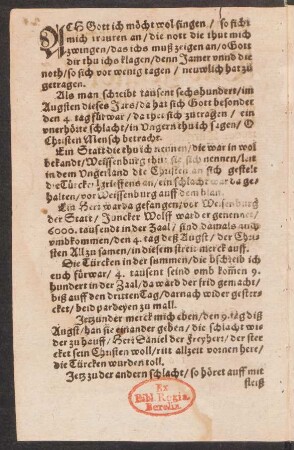 ACh Gott ich möcht wol singen / so ficht
mich trauren an / die nott die thut mich
zwingen / das ichs muß zeigen an / o Gott
dir thu ichs klagen / denn Jamer vnnd die
noth / so sich vor wenig tagen / neuwlich hat zu
getragen.
Als man schreibt tausent sechshundert / im
Augsten dieses Jars / da hat sich Gott besonder
den 4. tag fürwar / da thet sich zu tragen / ein
vnerhörte schlacht / in Vngern thu ich sagen / O
Christen Mensch betracht.
Ein Statt die thu ich nennen / die war in wol
bekandt / Weissenburg thut sie sich nennen / leit
in dem Vngerland die Christen an sich gestelt
die Türcken griffens an / ein schlacht war da ge
halten / vor Weissenburg auff dem plan.
Ein Herr ward a gefangen / vor Weissenburg
der Statt / Juncker Wolff ward er genennet /
6000. tausendt in der Zaal / sind damals auch
vmbkommen / den 4. tag deß Augst / der Chri
sten All zu samen / in diesem streit merck auff.
Die Türcken in der summen / die bschreib ich
euch fürwar / 4. tausent seind vmb komen 9.
hundert in der Zaal / da ward der frid gemacht /
biß auff den dritten Tag / darnach wider gester
cket / beid pardeyen zu mall.
Jetzunder merck mich eben / den 9. tag diß
Augst / han sie einander geben / die schlacht wis
der zu hauff / Herr Daniel der Freyherr / der ster
cket sein Christen woll / ritt allzeit vornen here /
die Türcken wurden toll.
Jetz zu der andern schlacht / so höret auff mit
fleiß
Ex
Bibl. Regia
Berolin.